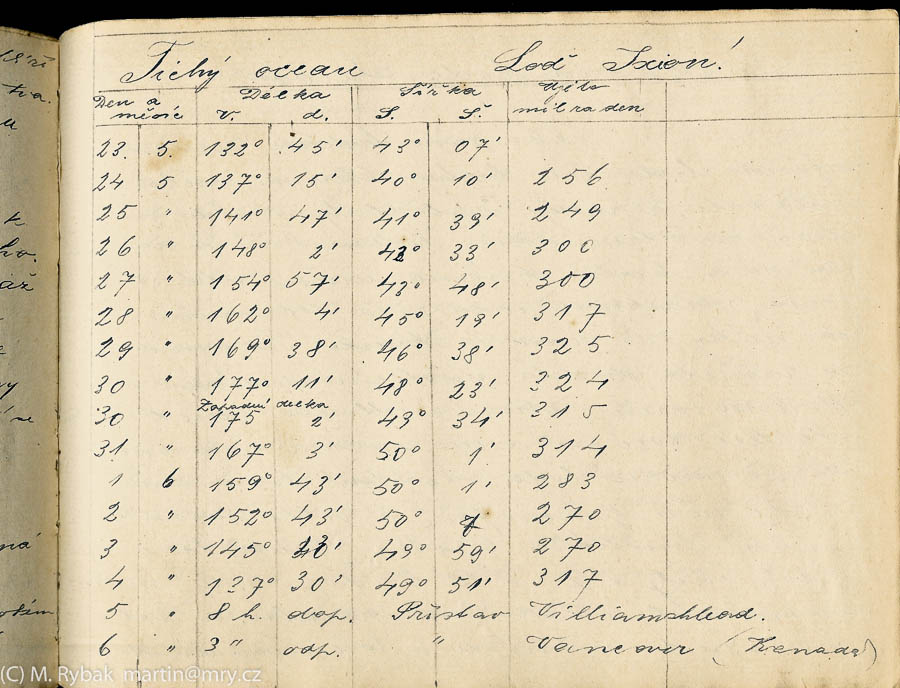 Tichý ocean Loď Ixion!
Den a měsíc Délka V. d. Šířka S. Š. ujeto mil za den
23. 5. 132° 45' 43° 07'
24 5 137° 15' 40° 10' 256
25 " 141° 47' 41° 39' 249
26 " 148° 2' 42° 33' 300
27 " 154° 57' 43° 48' 300
28 " 162° 4' 45° 19' 317
29 " 169° 38' 46° 38' 325
30 " 177° 11' 48° 23' 324
Západní delka
30 " 175 2' 49° 34' 315
31 " 167° 3' 50° 1' 314
1 6 159° 43' 50° 1' 283
2 " 152° 43' 50° 270
3 " 145° 49° 59' 270
4 " 137° 30' 49° 51' 317
5 " 8 h. dop. Přístav Villiamshead.
6 " 3 " odp. " Vancover (Kanada)
(C) M. Rybak martin@mry.cz